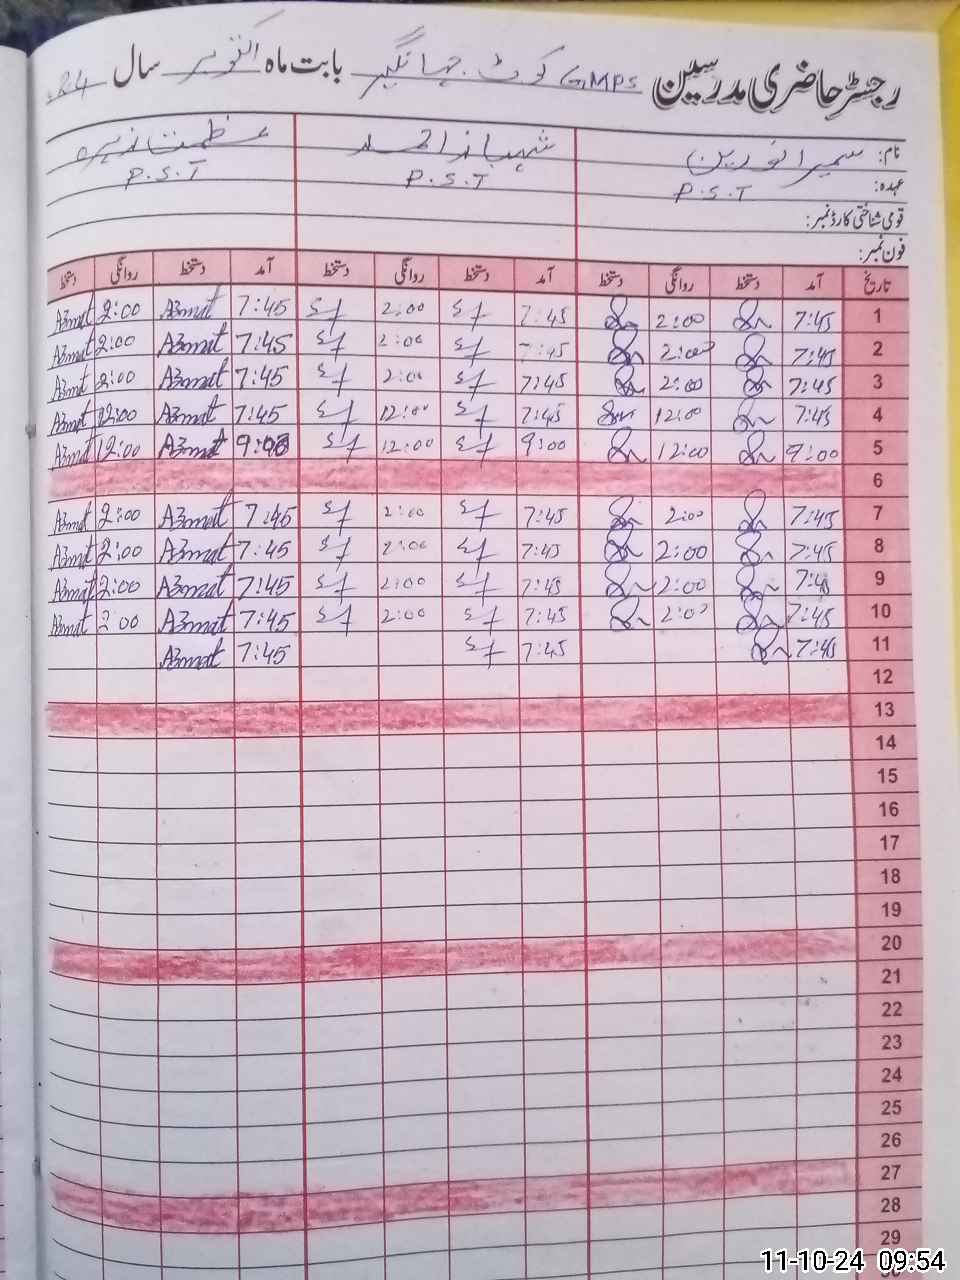 رجسٹر حاضری مدرسین GMPS کوٹ جہانگیر بابت ماہ اکتوبر سال 24.
نام: سمیرا نورین شہباز احمد عظمت نذیر
عہدہ: P.S.T P.S.T P.S.T
قومی شناختی کارڈ نمبر:
فون نمبر:
تاریخ آمد دستخط روانگی دستخط آمد دستخط روانگی دستخط آمد دستخط روانگی دستخط
1 7:45 2:00 7:45 2:00 7:45 Azmat 2:00 Azmat
2 7:45 2:00 7:45 2:00 7:45 Azmat 2:00 Azmat
3 7:45 2:00 7:45 2:00 7:45 Azmat 2:00 Azmat
4 7:45 12:00 7:45 12:00 7:45 Azmat 12:00 Azmat
5 9:00 12:00 9:00 12:00 9:00 Azmat 12:00 Azmat
6
7 7:45 2:00 7:45 2:00 7:45 Azmat 2:00 Azmat
8 7:45 2:00 7:45 2:00 7:45 Azmat 2:00 Azmat
9 7:45 2:00 7:45 2:00 7:45 Azmat 2:00 Azmat
10 7:45 2:00 7:45 2:00 7:45 Azmat 2:00 Azmat
11 7:45 7:45 7:45 Azmat
12
13
14
15
16
17
18
19
20
21
22
23
24
25
26
27
28
29
11-10-24 09:54